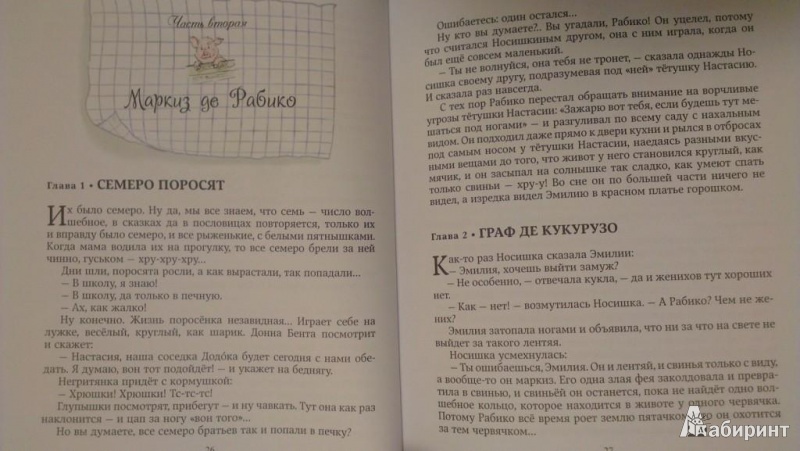 Часть вторая
Маркиз де Рабико
Глава 1 • СЕМЕРО ПОРОСЯТ
Их было семеро. Ну да, мы все знаем, что семь — число вол-
шебное, в сказках да в пословицах повторяется, только их
и вправду было семеро, и все рыженькие, с белыми пятнышками.
Когда мама водила их на прогулку, то все семеро брели за ней
чинно, гуськом — хру-хру-хру...
Дни шли, поросята росли, а как вырастали, так попадали...
— В школу, я знаю!
— В школу, да только в печную.
— Ах, как жалко!
Ну конечно. Жизнь поросёнка незавидная... Играет себе на
лужке, весёлый, круглый, как шарик. Донна Бента посмотрит
и скажет:
— Настасия, наша соседка Додока будет сегодня с нами обе-
дать. Я думаю, вон тот подойдёт! — и укажет на беднягу.
Негритянка придёт с кормушкой:
— Хрюшки! Хрюшки! Тс-тс-тс!
Глупышки посмотрят, прибегут — и ну чавкать. Тут она как раз
наклонится — и цап за ногу «вон того»...
Но вы думаете, все семеро братьев так и попали в печку?
26
Ошибаетесь: один остался...
Ну кто вы думаете?.. Вы угадали, Рабико! Он уцелел, потому
что считался Носишкиным другом, она с ним играла, когда он
был ещё совсем маленький.
— Ты не волнуйся, она тебя не тронет, — сказала однажды Но-
сишка своему другу, подразумевая под «ней» тётушку Настасию.
И сказала раз навсегда.
С тех пор Рабико перестал обращать внимание на ворчливые
угрозы тётушки Настасии: «Зажарю вот тебя, если будешь тут ме-
шаться под ногами» — и разгуливал по всему саду с нахальным
видом. Он подходил даже прямо к двери кухни и рылся в отбросах
под самым носом у тётушки Настасии, наедаясь разными вкус-
ными вещами до того, что живот у него становился круглый, как
мячик, и он засыпал на солнышке так сладко, как умеют спать
только свиньи — хру-у! Во сне он по большей части ничего не
видел, а изредка видел Эмилию в красном платье горошком.
Глава 2 • ГРАФ ДЕ КУКУРУЗО
Как-то раз Носишка сказала Эмилии:
— Эмилия, хочешь выйти замуж?
— Не особенно, — отвечала кукла, — да и женихов тут хороших
нет.
— Как — нет! — возмутилась Носишка. — А Рабико? Чем не же-
них?
Эмилия затопала ногами и объявила, что ни за что на свете не
выйдет за такого лентяя.
Носишка усмехнулась:
— Ты ошибаешься, Эмилия. Он и лентяй, и свинья только с виду,
а вообще-то он маркиз. Его одна злая фея заколдовала и превра-
тила в свинью, и свиньёй он останется, пока не найдёт одно вол-
шебное кольцо, которое находится в животе у одного червячка.
Потому Рабико всё время роет землю пятачком, что он охотится
за тем червячком...
27
Лабиринт